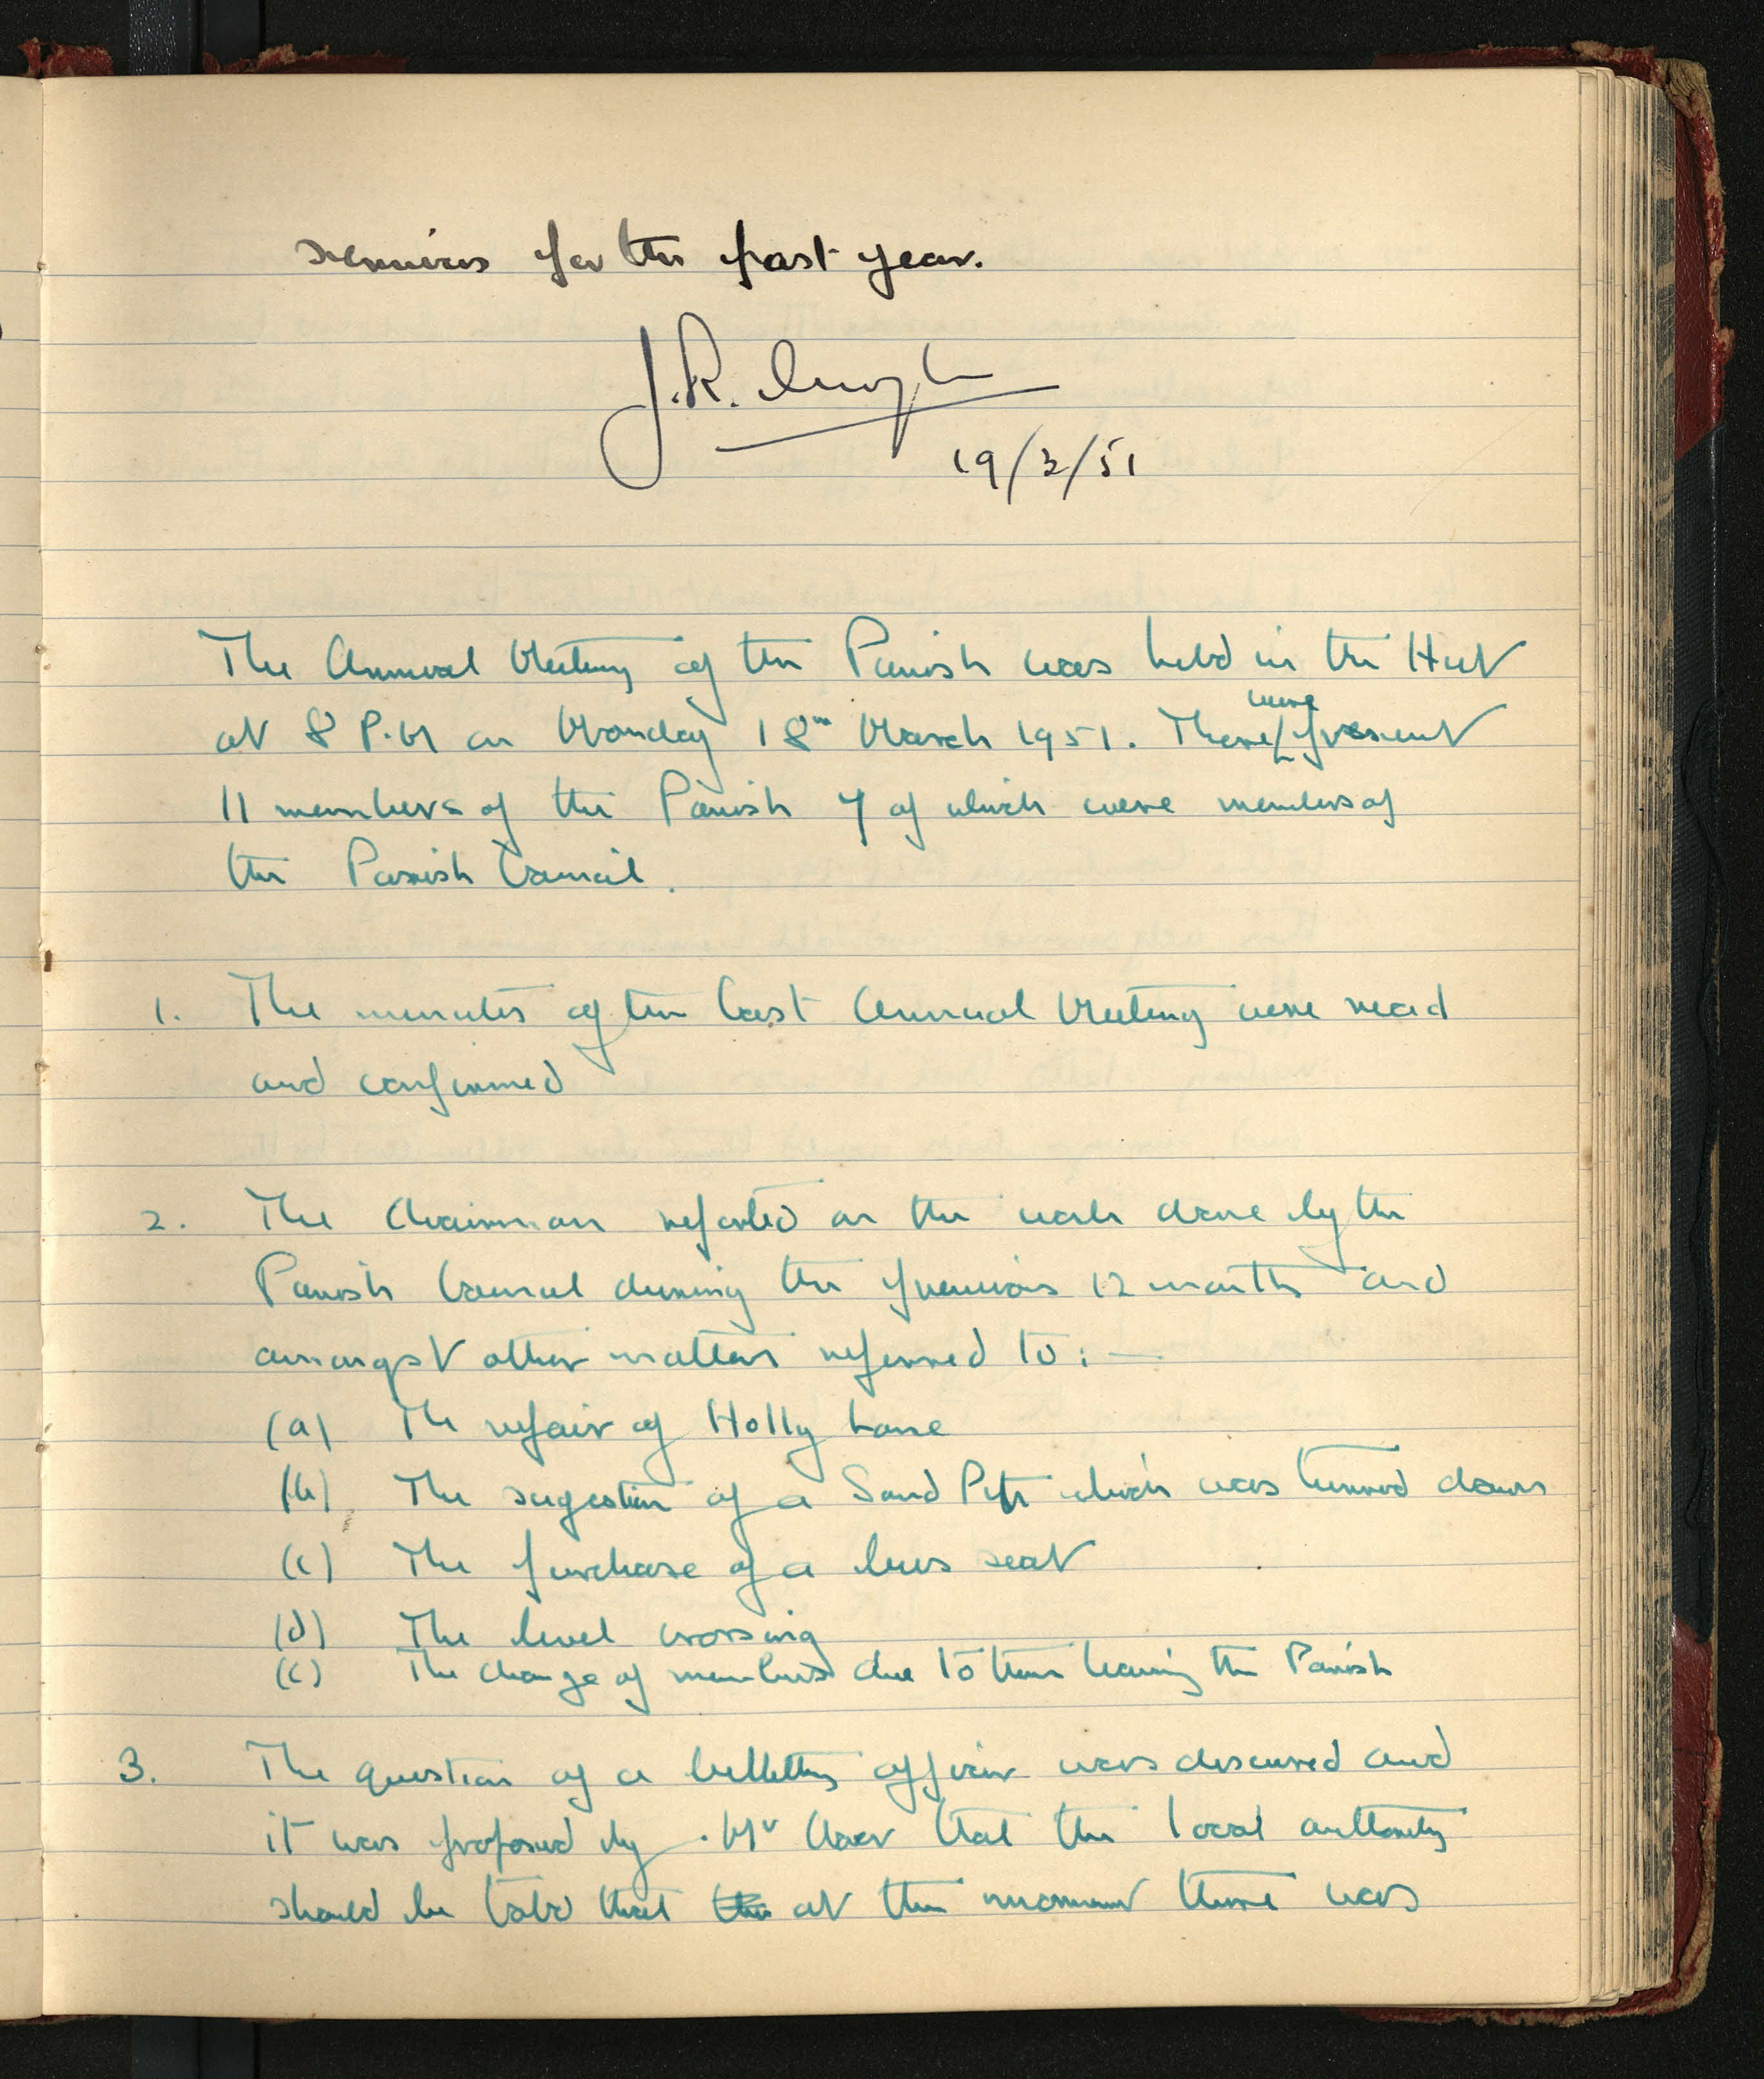 services for the past year.
J.R.
19/3/51
The Annual Meeting of the Parish was held in the Hut
were
at 8 P.M on Monday 18th March 1951. There present
11 members of the Parish 7 of which were members of
the Parish Council.
1. The minutes of the last Annual Meeting were read
and confirmed
2. The Chairman reported on the work done by the
Parish Council during the previous 12 months and
amongst other matters referred to:—
(a) The repair of Holly Lane
(b) The sugestion of a Sand Pit which was turned down
(c) The purchase of a bus seat
(d) The level crossing
(e) The change of members due to them leaving the Parish
3. The question of a billetting officer was discussed and
it was proposed by Mr that the local authority
should be told that the at the moment there was